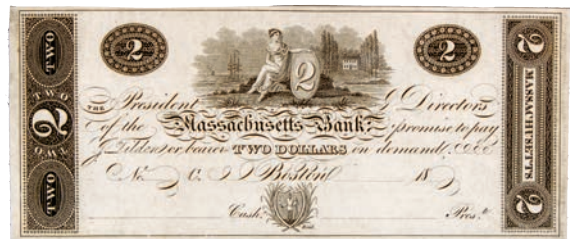 TWO
TWO
2
TWO
TWO
2
2
2
THE President & Directors
of the Massachusetts Bank, promise to pay
J. Tilden or bearer TWO DOLLARS on demand.
No. C. Boston 18
Cash.r Pres.t
2
MASSACHUSETTS
2